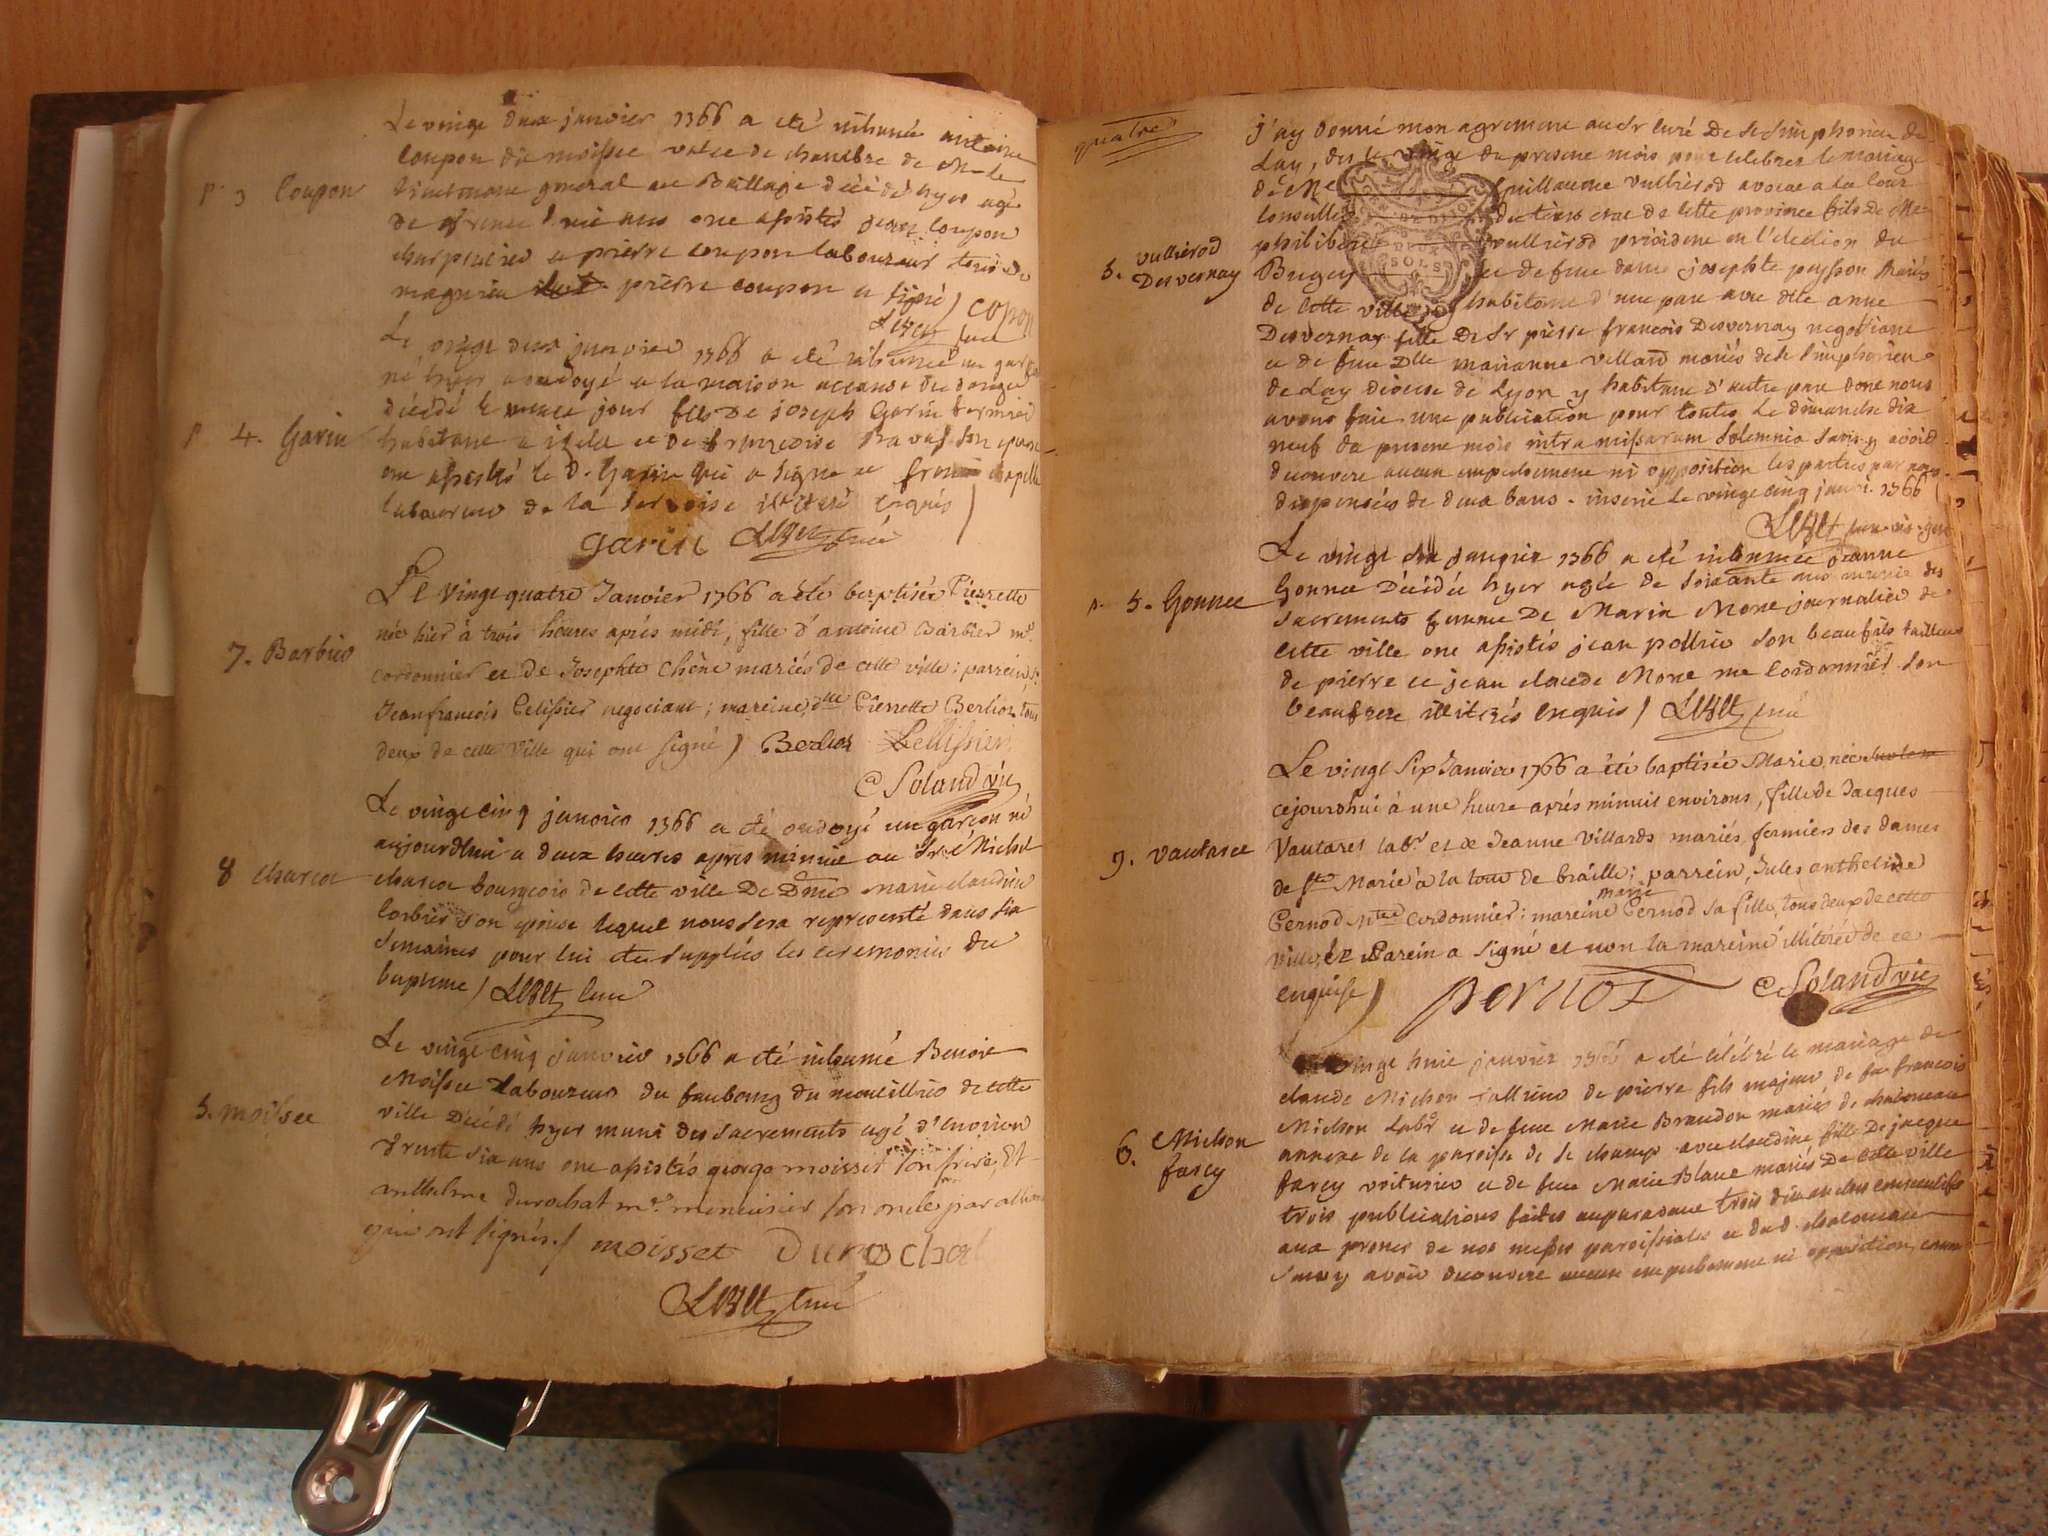 p. 3 Coupon
Le vingt deux janvier 1766 a eté inhumé antoine
coupon dit moissee valet de chambre de Mr le
lieutenant general au Baillage décédé hyer agé
de trente ans ont assistés pierre coupon
charpentier et pierre coupon laboureur tous de
magnieu pierre coupon a signé / copon
curé
Le vingt deux janvier 1766 a eté inhumé un garcon
né hyer ondoyé a la maison a cause du danger
décédé le meme jour fils de joseph Garin fermier
p 4. Garin
habitant a et de francoise Ravat son epouse
ont assistés le d. Garin qui a signé et chapelle
laboureur de la illiteré enquis /
garin curé
Le Vingt quatre Janvier 1766 a été baptisée Pierrette
née hier à trois heures aprés midi, fille d'antoine Barbier me.
7. Barbier
cordonnier et de Josephte Chêne mariés de cette ville; parrein, Sr
Jeanfrancois Pelissier negociant; mareine, dlle Pierrette Berlioz, tous
deux de cette ville qui ont signé / Berlioz Pellissier
Soland vic
Le vingt cinq janvier 1766 a eté ondoyé un garcon né
aujourdhui a deux heures apres minuit au Sr Michel
8 charcot
charcot bourgeois de cette ville et De Dme marie claudine
corbier son epouse lequel nous sera representé dans six
semaines pour lui etre supplées les ceremonies du
bapteme / curé
Le vingt cinq janvier 1766 a eté inhumé Benoit
Moissee laboureur du faubourg du montillier de cette
5. moissee
ville Décédé hyer muni des sacrements agé d'environ
trente six ans ont assistés george moisset son frere, Et
anthelme durochat me. menuisier son oncle par alliance
qui ont signés. / moisset Durochat
curé
quatre
J'ay donné mon agrement au Sr curé de St Simphorien de
Lay, des le vingt du present mois pour celebrer le mariage
de Me Guillaume vullierod avocat a la cour
conseiller du tiers etat de cette province fils de Me
philibert vullierod president en l'election du
5. vullierod
Desvernay
Bugey et de feue dame josephte peysson mariés
de cette ville y habitant d'une part avec dlle anne
Desvernay fille de Sr pierre francois Desvernay negotiant
et de feue Dlle marianne villard mariés de St Simphorien
de Lay diocese de Lyon y habitant d'autre part dont nous
avons fait une publication pour toutes le dimanche dix
neuf du present mois intra missarum solemnia sans y avoir
decouvert aucun empechement ni opposition les parties par nous
dispensées de deux bans. inseré le vingt cinq janvi. 1766 /
Le vingt six janvier 1766 a eté inhumée jeanne
p. 5. Gonnee
Gonnee Décédée hyer agée de soixante ans munie des
sacrements femme De Marin Mone journalier de
cette ville ont assistés jean son beaufils tailleur
de pierre et jean claude Mone me cordonnier son
beaufrere illiterés enquis / curé
Le vingt Six Janvier 1766 a été baptisée Marie, née
cejourdhui à une heure aprés minuit environs, fille de Jacques
9. vautaret
Vautaret labr. et de Jeanne Villards mariés fermiers des dames
de Ste Marie à la tour de braille; parrein, Jules anthelme
Pernod Mtre cordonnier: mareine marie Pernod sa fille, tous deux de cette
ville, le Parein a signé et non la mareine illiterée de ce
enquise / pernod Soland vic
vingt huit janvier 1766 a eté célébré le mariage de
claude Michon tailleur de pierre fils majeur de feu francois
Michon labr et de feue Marie Brandon mariés de chalomeau
6. Michon
farcy
annexe de la paroisse de St champ avec claudine fille De jacque
farcy voiturier et de feue Marie Blanc mariés De cette ville
trois publications faites auparavant trois dimanches consecutifs
aux prones de nos messes paroissiales et dud. chalomeau
sans y avoir decouvert aucun empechement ni opposition